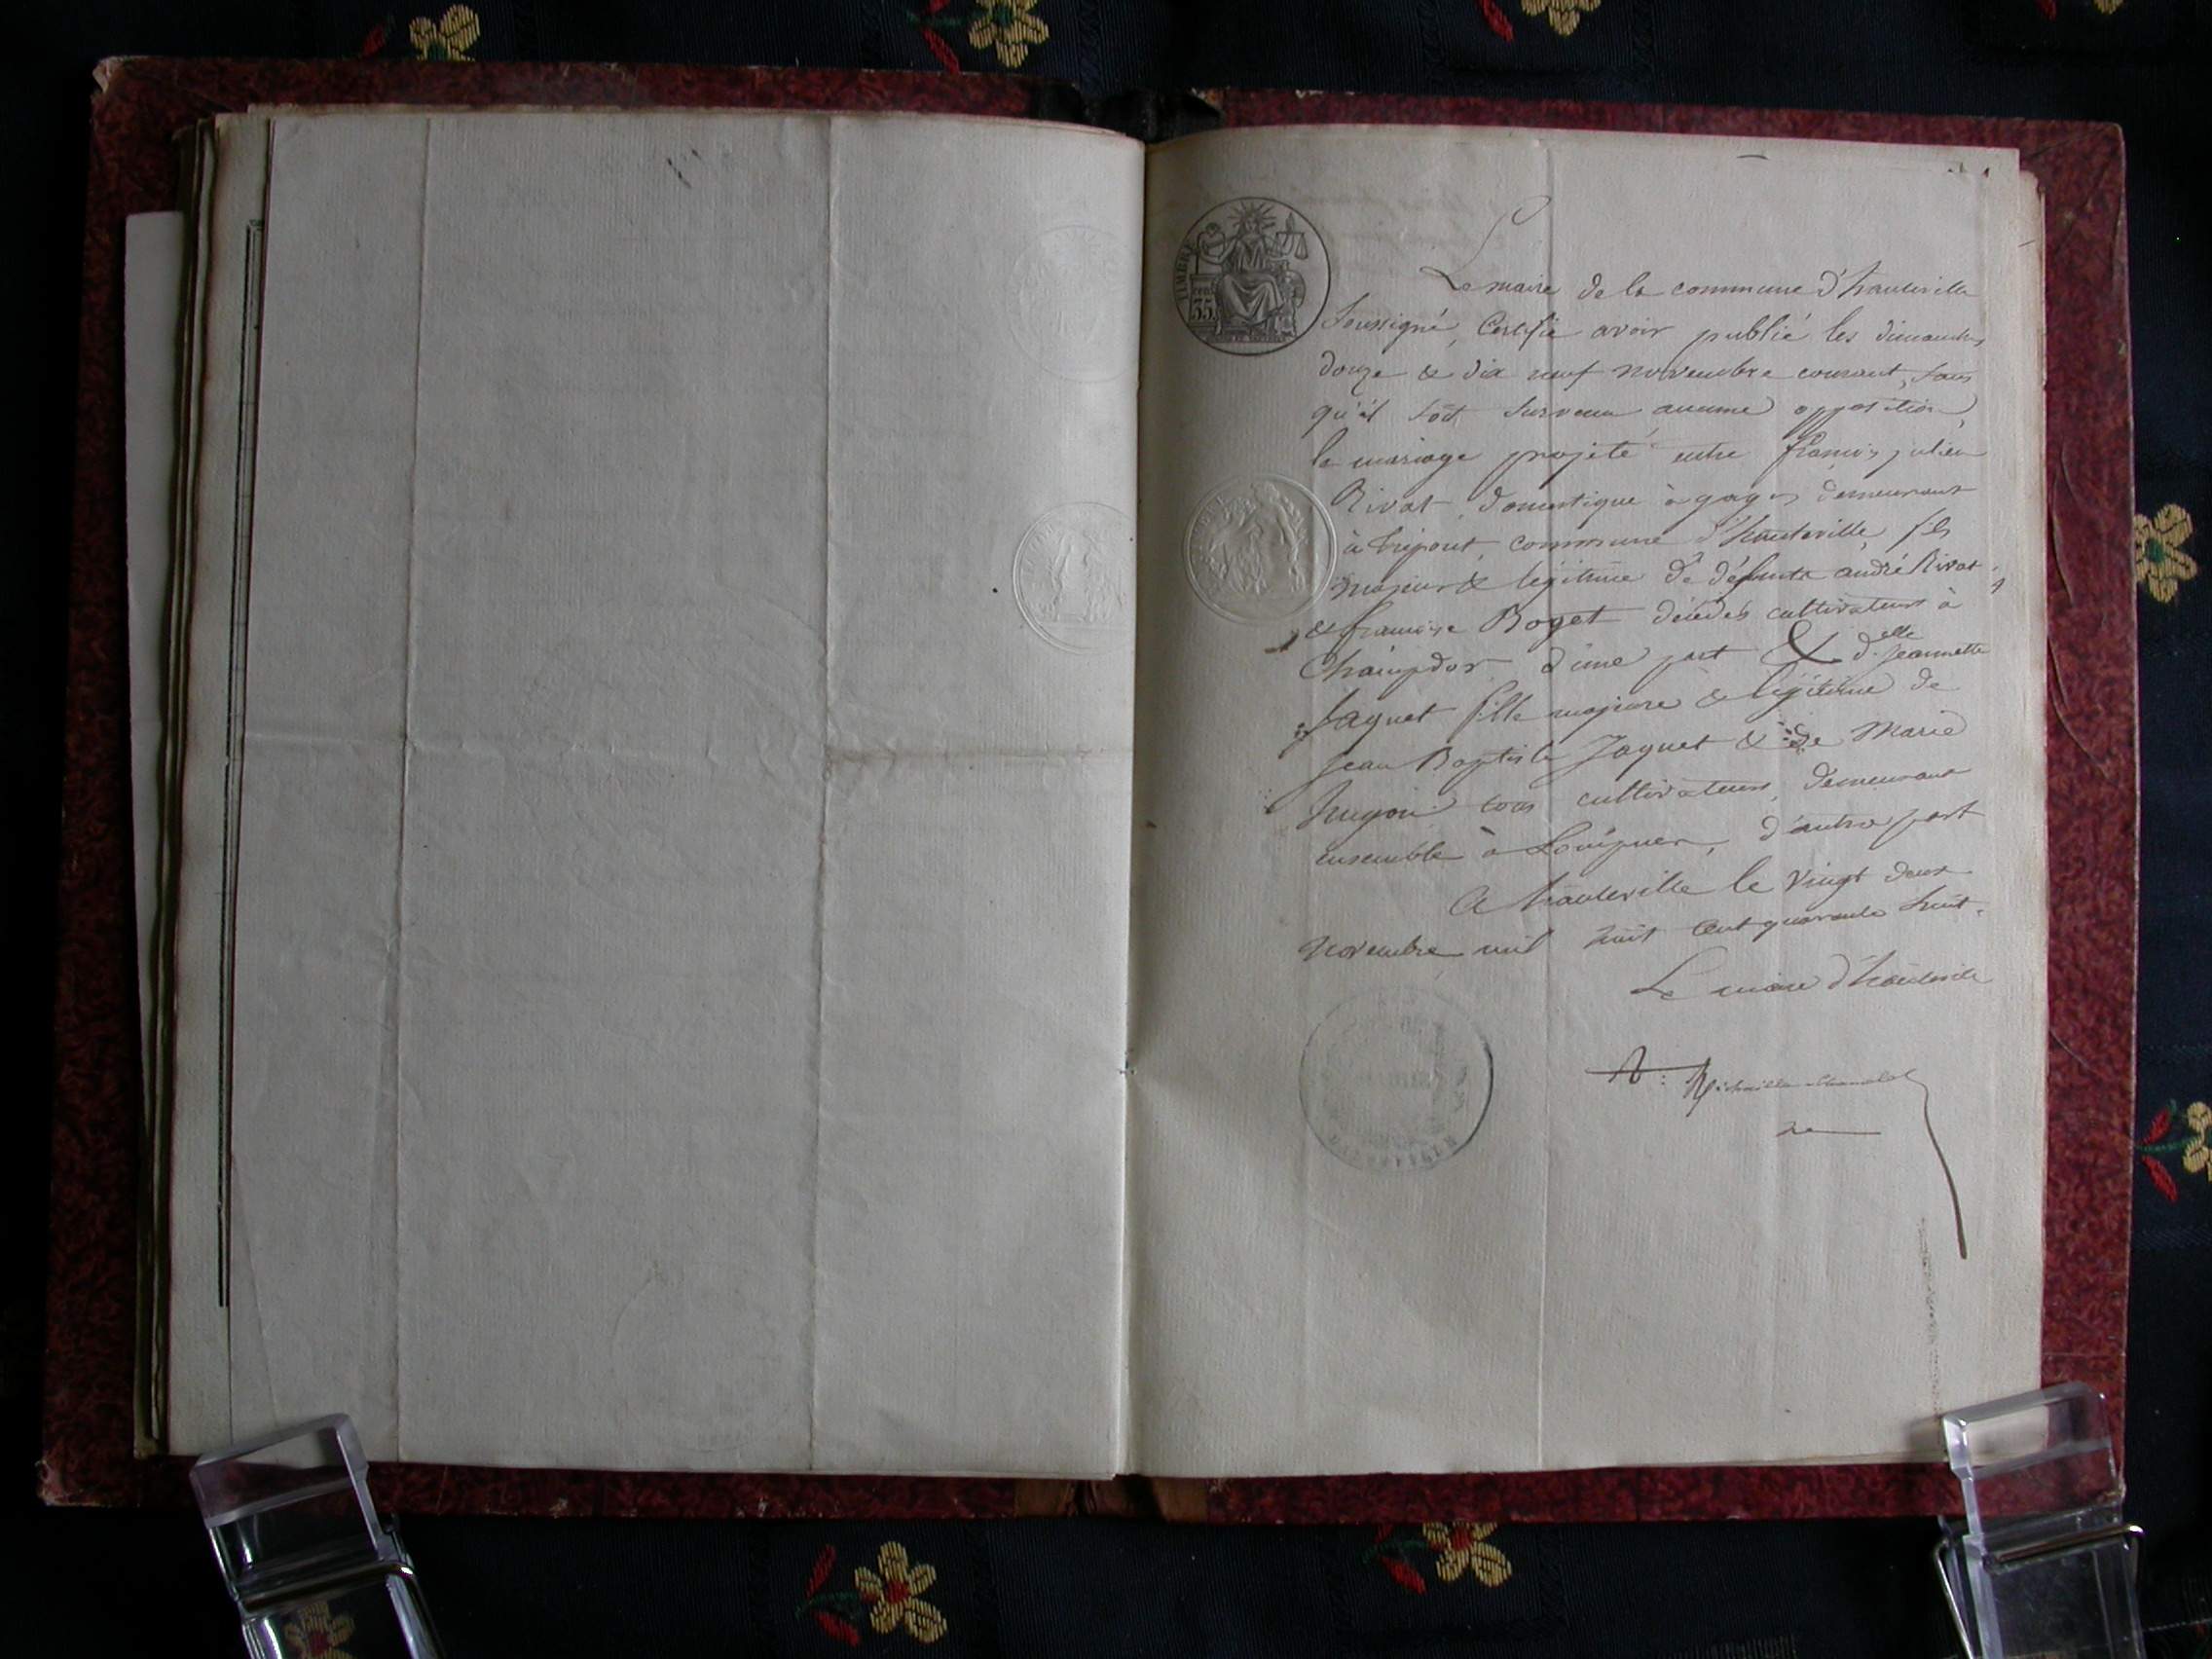 TIMBRE
35
Le maire de la commune d'hauteville
Soussigné, Certifie avoir publié les dimanches
douze & dix neuf novembre courant, sans
qu'il soit survenu aucune opposition,
le mariage projeté entre françois julien
Rivat, domestique à gages demeurant
à trépont, commune d'hauteville, fils
majeur & légitime de défunts andré Rivat
& françoise Boget décédés cultivateurs à
Champdor d'une part & d.elle Jeannette
Jaquet fille majeure & légitime de
Jean Baptiste Jaquet & de Marie
tous cultivateurs, demeurant
ensemble à d'autre part
A hauteville le vingt deux
novembre mil huit cent quarante huit.
Le maire d'hauteville